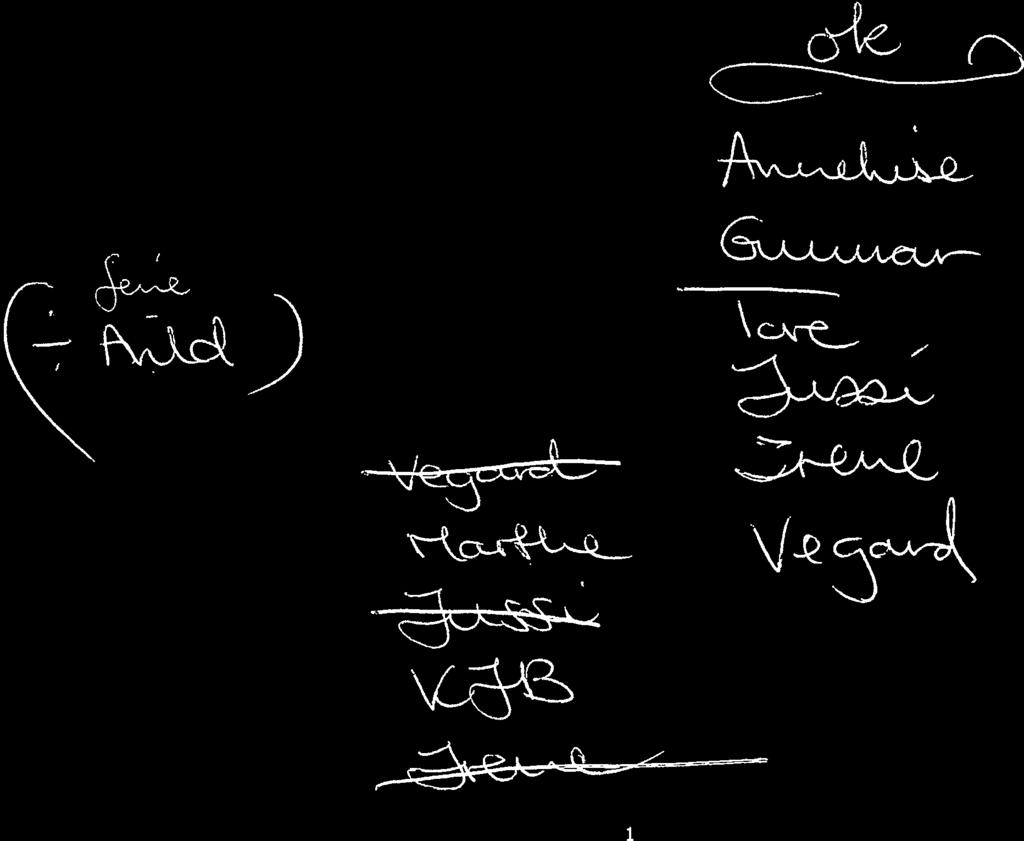 ok
Annelise
Gunnar
Tore
Jussi
Irene
Vegard
ferie
÷ Arild
Vegard
Marthe
Jussi
KJB
Irene
1